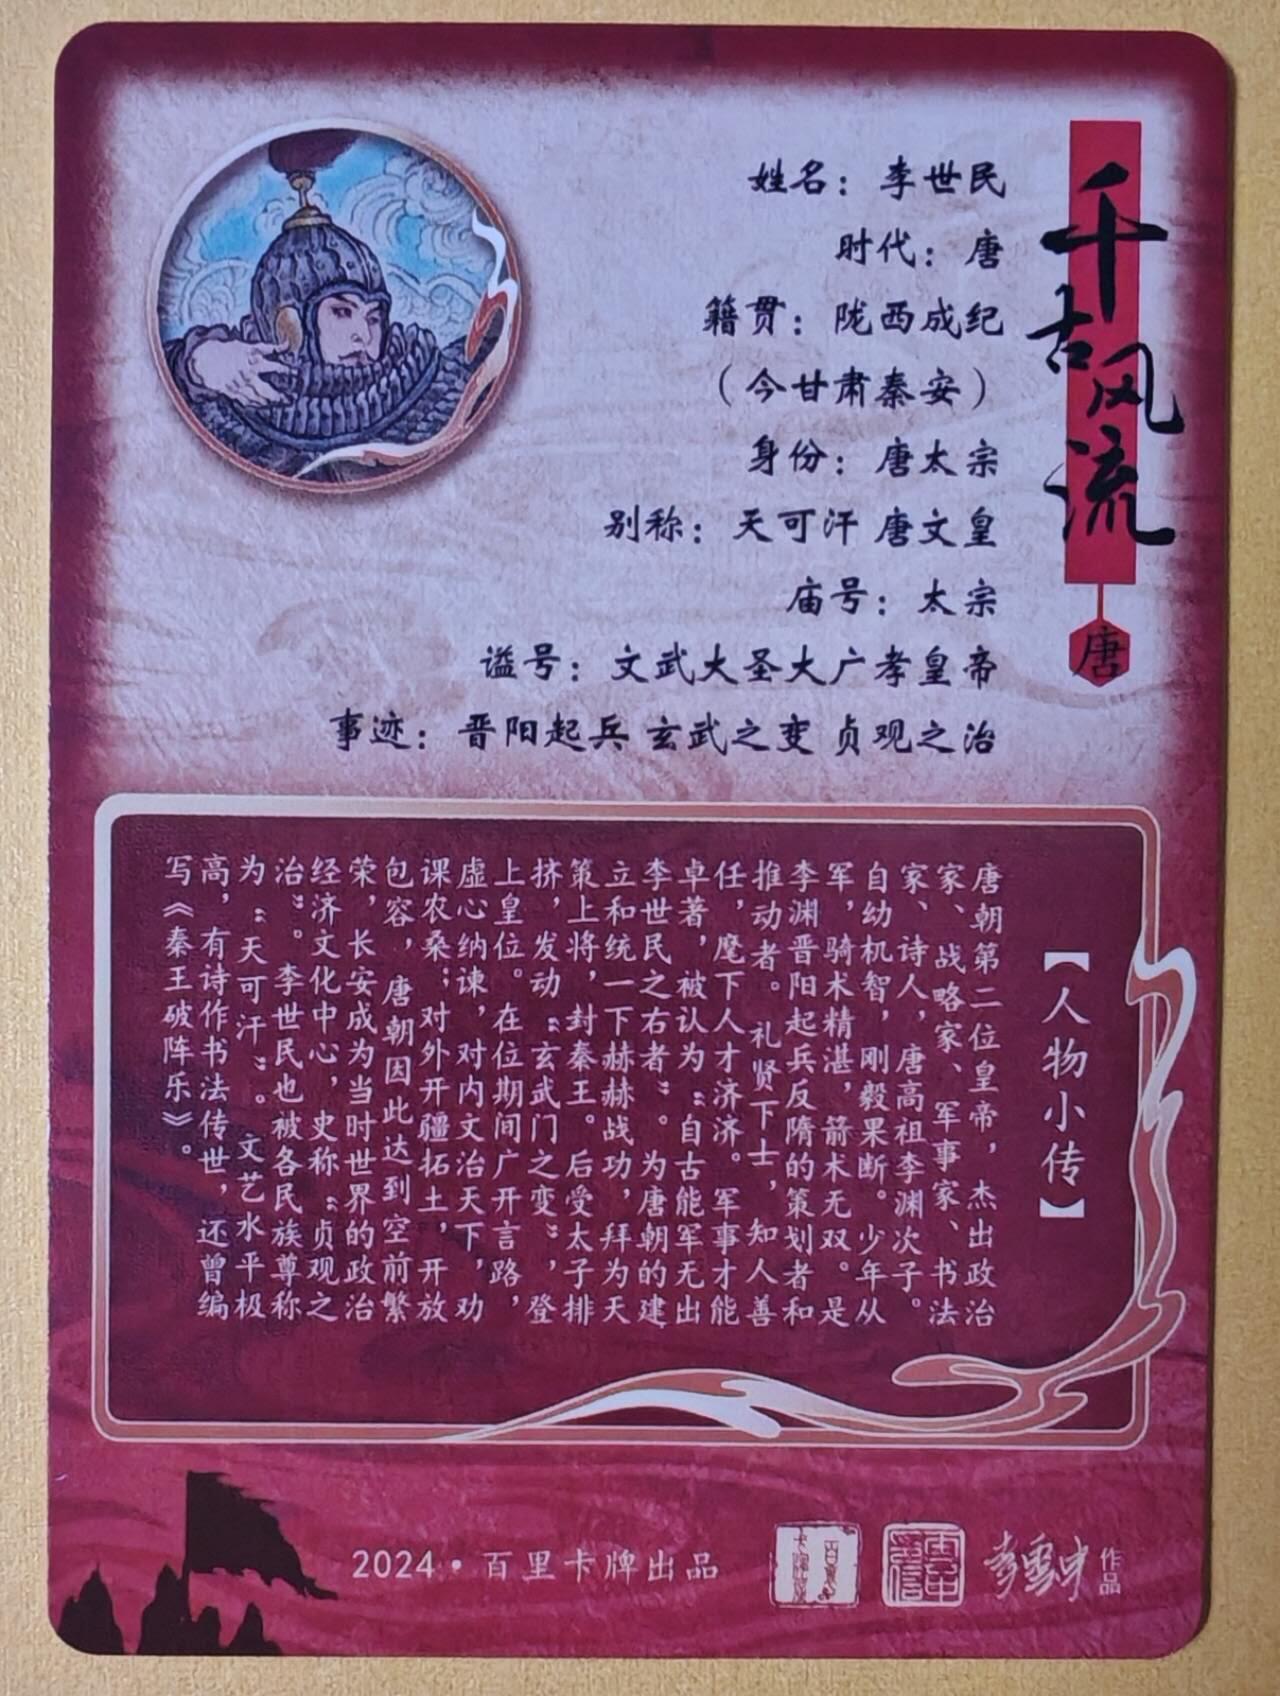 千古风流
唐
姓名：李世民
时代：唐
籍贯：陇西成纪
（今甘肃秦安）
身份：唐太宗
别称：天可汗 唐文皇
庙号：太宗
谥号：文武大圣大广孝皇帝
事迹：晋阳起兵 玄武之变 贞观之治
【人物小传】
唐朝第二位皇帝，杰出政治
家、战略家、军事家、书法
家、诗人，唐高祖李渊次子。
自幼机智，刚毅果断。少年从
军，骑术精湛，箭术无双。是
李渊晋阳起兵反隋的策划者和
推动者。礼贤下士，知人善
任，麾下人才济济。军事才能
卓著，被认为“自古能军无出
李世民之右者”。为唐朝的建
立和统一下赫赫战功，拜为天
策上将，封秦王。后受太子排
挤，发动“玄武门之变”，登
上皇位。在位期间广开言路，
虚心纳谏，对内文治天下，劝
课农桑；对外开疆拓土，开放
包容，唐朝因此达到空前繁
荣，长安成为当时世界的政治
经济文化中心，史称“贞观之
治”。李世民也被各民族尊称
为“天可汗”。文艺水平极
高，有诗作书法传世，还曾编
写《秦王破阵乐》。
2024·百里卡牌出品
李云中 作品